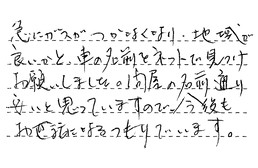 急にガスがつかなくなり、地域が
良いかと、車の名前をネットで見つけ
お願いしました。問屋の名前通り
安いと思っていますので、今後も
お世話になるつもりでいます。